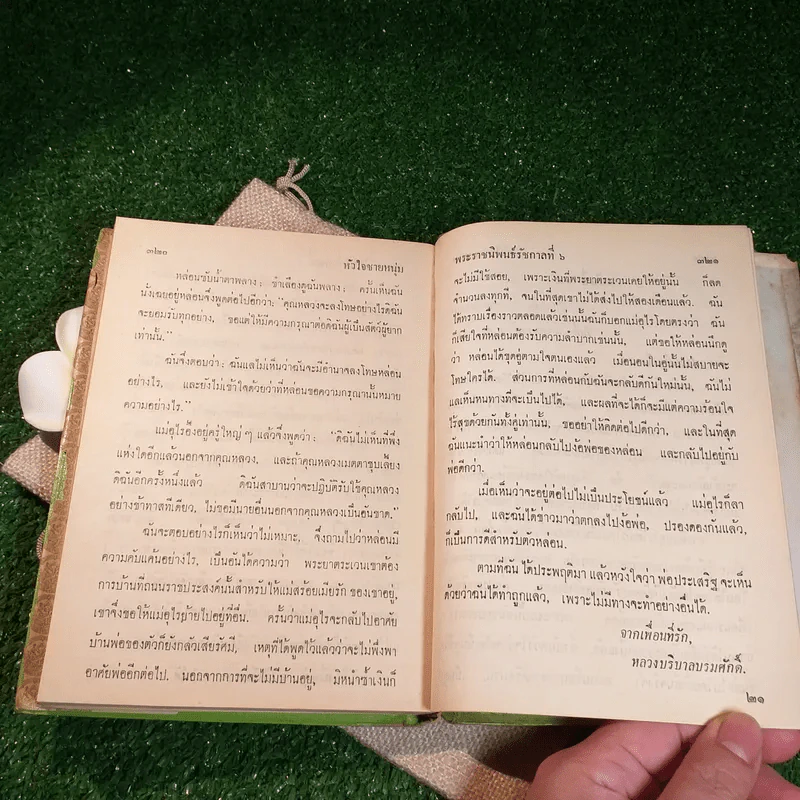 ๓๒๐
หัวใจชายหนุ่ม
หล่อนซับน้ำตาพลาง; ชำเลืองดูฉันพลาง; ครั้นเห็นฉัน
นั่งเฉยอยู่หล่อนจึ่งพูดต่อไปอีกว่า: “คุณหลวงจะลงโทษอย่างไรดิฉัน
จะยอมรับทุกอย่าง, ขอแต่ให้มีความกรุณาต่อดิฉันผู้เป็นสัตว์ผู้ยาก
เท่านั้น.”
ฉันจึ่งตอบว่า: ฉันแลไม่เห็นว่าฉันจะมีอำนาจลงโทษหล่อน
อย่างไร, และยังไม่เข้าใจด้วยว่าที่หล่อนขอความกรุณานั้นหมาย
ความอย่างไร.”
แม่อุไรร้องอยู่ครู่ใหญ่ ๆ แล้วจึ่งพูดว่า: “ดิฉันไม่เห็นที่พึ่ง
แห่งใดอีกแล้วนอกจากคุณหลวง, และถ้าคุณหลวงเมตตาชุบเลี้ยง
ดิฉันอีกครั้งหนึ่งแล้ว ดิฉันสาบานว่าจะปฏิบัติรับใช้คุณหลวง
อย่างข้าทาสทีเดียว, ไม่ขอมีนายอื่นนอกจากคุณหลวงเป็นอันขาด.”
ฉันจะตอบอย่างไรก็เห็นว่าไม่เหมาะ, จึ่งถามไปว่าหล่อนมี
ความคับแค้นอย่างไร, เป็นอันได้ความว่า พระยาตระเวนเขาต้อง
การบ้านที่ถนนราชประสงค์นั้นสำหรับให้แม่สร้อยเมียรัก ของเขาอยู่,
เขาจึ่งขอให้แม่อุไรย้ายไปอยู่ที่อื่น. ครั้นว่าแม่อุไรจะกลับไปอาศัย
บ้านพ่อของตัวก็ยังกลัวเสียรัศมี, เหตุที่ได้พูดไว้แล้วว่าจะไม่พึ่งพา
อาศัยพ่ออีกต่อไป. นอกจากการที่จะไม่มีบ้านอยู่, มิหนำซ้ำเงินก็
พระราชนิพนธ์รัชกาลที่ ๖
๓๒๑
จะไม่มีใช้สอย, เพราะเงินที่พระยาตระเวนเคยให้อยู่นั้น ก็ลด
จำนวนลงทุกที, จนในที่สุดเขาไม่ได้ส่งไปให้สองเดือนแล้ว. ฉัน
ได้ทราบเรื่องราวตลอดแล้วเช่นนั้นฉันก็บอกแม่อุไรโดยตรงว่า ฉัน
ก็เสียใจที่หล่อนต้องรับความลำบากเช่นนั้น, แต่ขอให้หล่อนนึกดู
ว่า หล่อนได้ขุดอู่ตามใจตนเองแล้ว เมื่อนอนในอู่นั้นไม่สบายจะ
โทษใครได้. ส่วนการที่หล่อนกับฉันจะกลับดีกันใหม่นั้น, ฉันไม่
แลเห็นหนทางที่จะเป็นไปได้, และผลที่จะได้ก็จะมีแต่ความร้อนใจ
ไร้สุขด้วยกันทั้งคู่เท่านั้น, ขออย่าให้คิดต่อไปดีกว่า, และในที่สุด
ฉันแนะนำว่าให้หล่อนกลับไปง้อพ่อของหล่อน และกลับไปอยู่กับ
พ่อดีกว่า.
เมื่อเห็นว่าจะอยู่ต่อไปไม่เป็นประโยชน์แล้ว แม่อุไรก็ลา
กลับไป, และฉันได้ข่าวมาว่าตกลงไปง้อพ่อ, ปรองดองกันแล้ว,
ก็เป็นการดีสำหรับตัวหล่อน.
ตามที่ฉัน ได้ประพฤติมา แล้วหวังใจว่า พ่อประเสริฐ จะเห็น
ด้วยว่าฉันได้ทำถูกแล้ว, เพราะไม่มีทางจะทำอย่างอื่นได้.
จากเพื่อนที่รัก,
หลวงบริบาลบรมศักดิ์.
๒๑